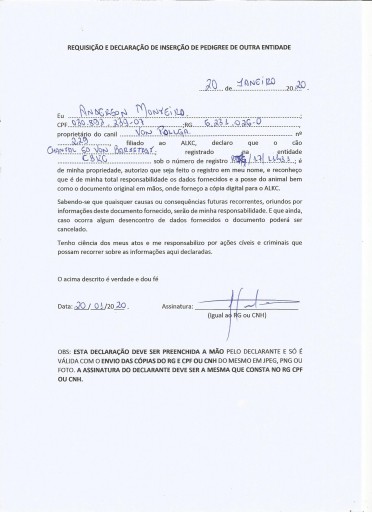 REQUISIÇÃO E DECLARAÇÃO DE INSERÇÃO DE PEDIGREE DE OUTRA ENTIDADE
20 de JANEIRO 2020.
Eu ANDERSON MONTEIRO ;
CPF ;RG ;
proprietário do canil VON nº
229, filiado ao ALKC, declaro que o cão
VON registrado na entidade
CBKC sob o número de registro ; é
de minha propriedade, autorizo que seja feito o registro em meu nome, e reconheço
que é de minha total responsabilidade os dados fornecidos e a posse do animal bem
como o documento original em mãos, onde forneço a cópia digital para o ALKC.
Sabendo-se que quaisquer causas ou consequências futuras recorrentes, oriundos por
informações deste documento fornecido, serão de minha responsabilidade. E que ainda,
caso ocorra algum desencontro de dados fornecidos o documento poderá ser
cancelado.
Tenho ciência dos meus atos e me responsabilizo por ações cíveis e criminais que
possam recorrer sobre as informações aqui declaradas.
O acima descrito é verdade e dou fé
Data: 20/01/2020. Assinatura:
(Igual ao RG ou CNH)
OBS: ESTA DECLARAÇÃO DEVE SER PREENCHIDA A MÃO PELO DECLARANTE E SÓ É
VÁLIDA COM O ENVIO DAS CÓPIAS DO RG E CPF OU CNH DO MESMO EM JPEG, PNG OU
FOTO. A ASSINATURA DO DECLARANTE DEVE SER A MESMA QUE CONSTA NO RG CPF
OU CNH.